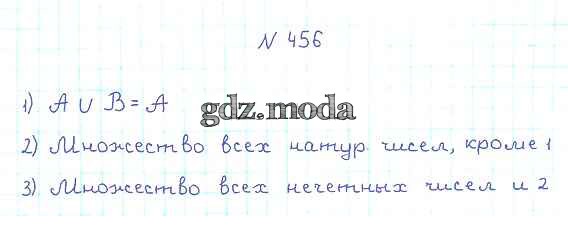 N 456
1) A ∪ B = A
gdz.moda
2) Множество всех натур чисел, кроме 1
3) Множество всех нечетных чисел и 2